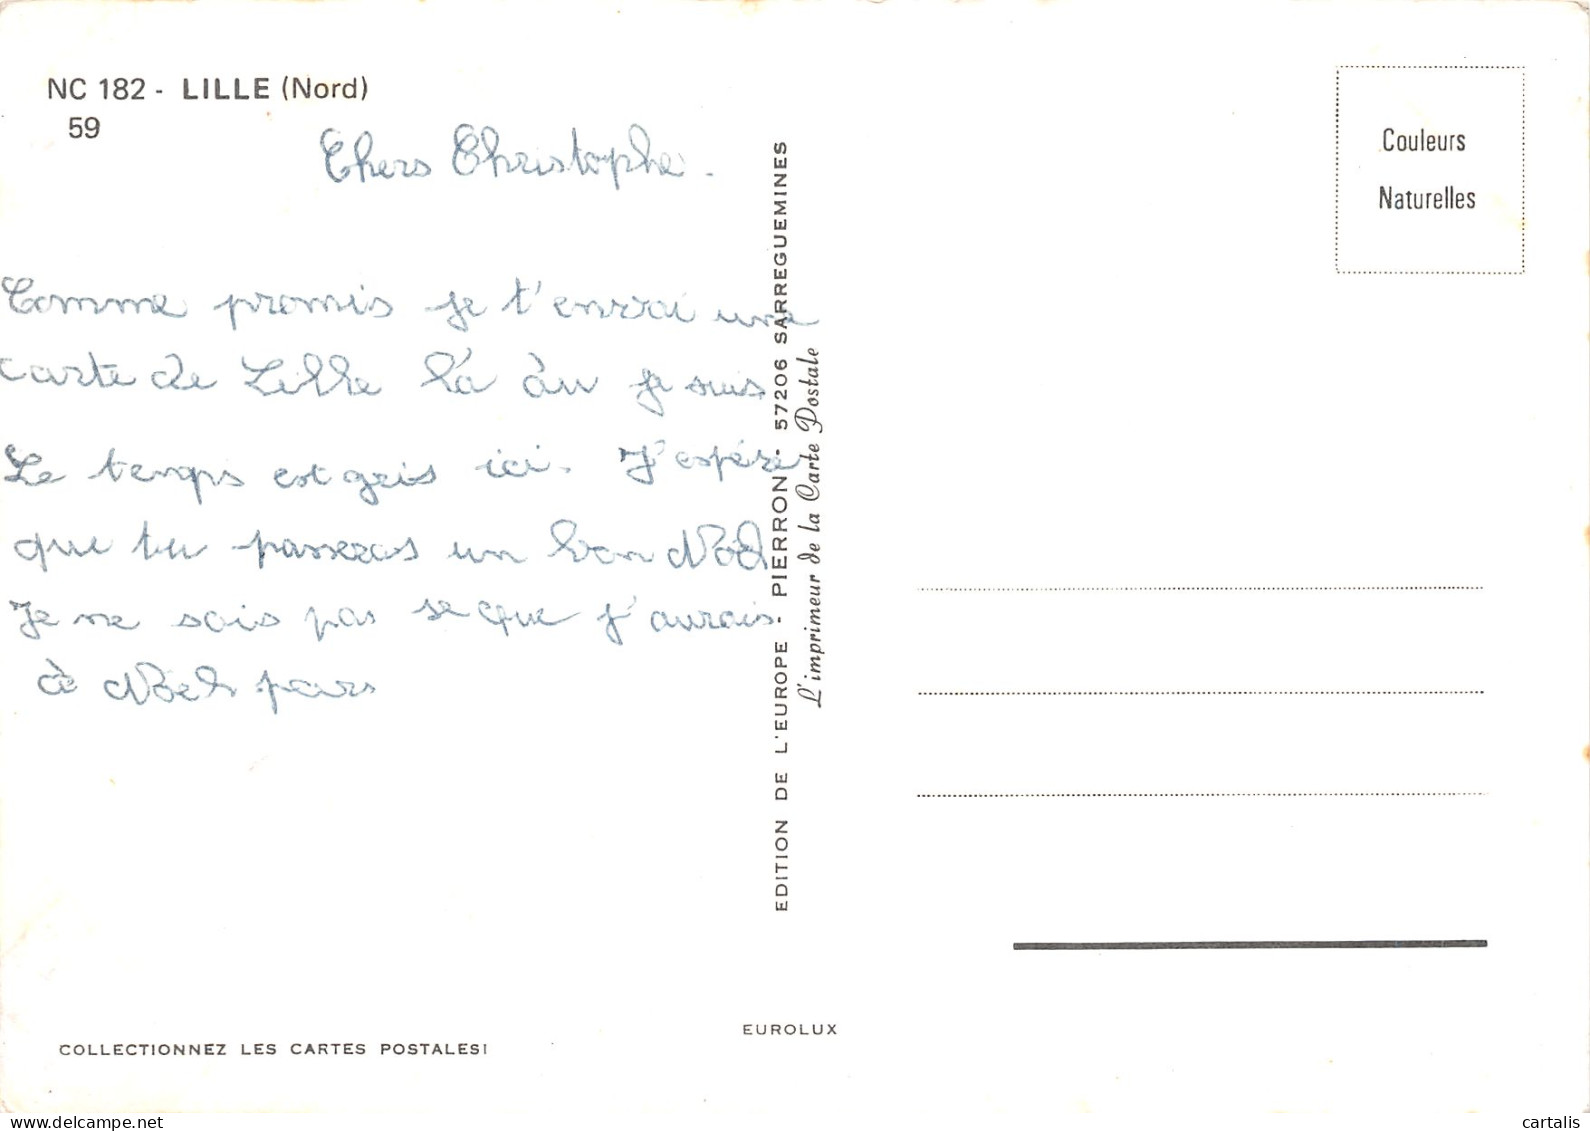 NC 182 - LILLE (Nord)
59
Chers Christophe.
Comme promis je t'envoi une
carte de Lille là àu je suis
Le temps est gris ici. J'espére
que tu passeras un bon Noël
Je ne sais pas se que j'aurais
à Noël pars
COLLECTIONNEZ LES CARTES POSTALES!
EDITION DE L'EUROPE - PIERRON - 57206 SARREGUEMINES
L'imprimeur de la Carte Postale
EUROLUX
Couleurs
Naturelles
www.delcampe.net
cartalis